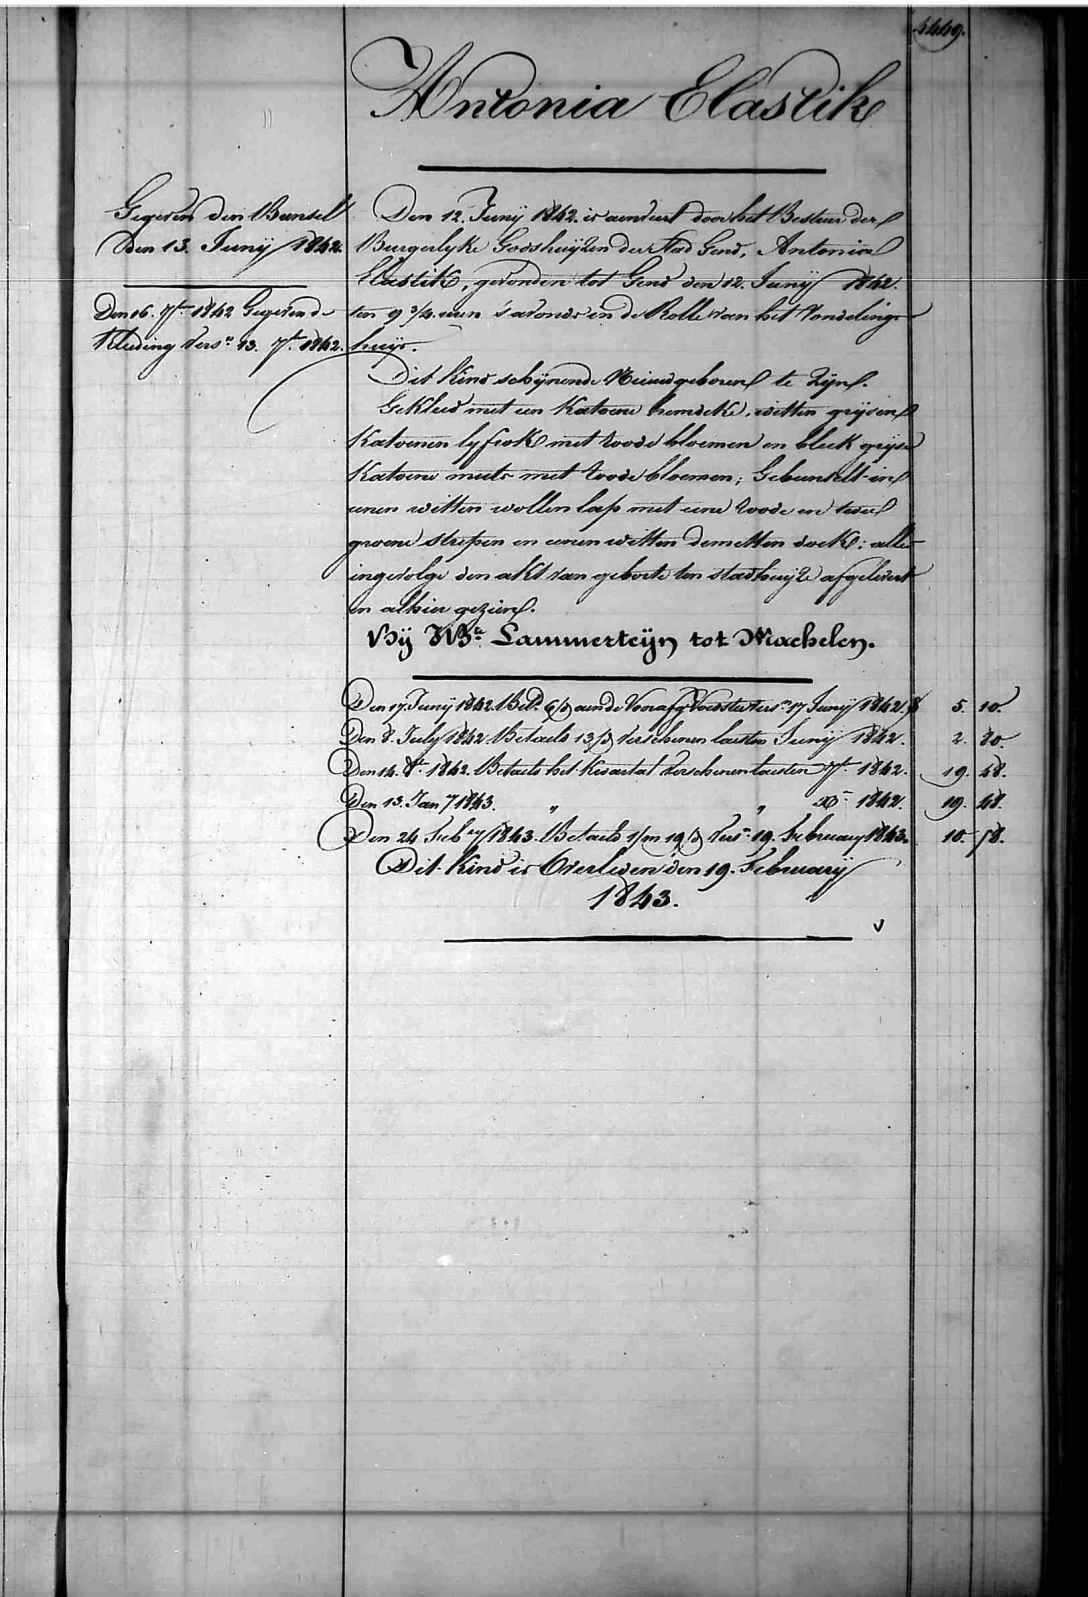 4449.
Antonia Elastik
Gegeven den Bunsel
den 13. Junij 1842.
Den 16. 7r. 1842 Gegeven de
Kleding vers.n 13. 7r. 1842.
Den 12. Junij 1842. is aenveert door het Bestuer der
Burgerlyke Godshuijzen der stad Gend, Antonia
Elastik, gevonden tot Gend den 12. Junij 1842.
ten 9 3/4 uren 's avonds in de Rolle van het Vondelings-
huijs.
Dit Kind schijnende Nieuwgeboren te Zijn.
Gekleed met een Katoene hemdeke, witten grijsen
Katoenen lyfrok met roode bloemen en bleek grijse
Katoene muts met roode bloemen; Gebunselt in
eenen witten wollen lap met eene roode en twee
groene strepen en eenen witten demetten doek: alles
ingevolge den akt van geboorte ten stadhuijze afgelevert
en alhier gezien.
Bij Wde. Lammerteijn tot Machelen.
Den 17. Junij 1842. Bet.d 6/d aen de Voorafg. Voedster vers.n 17 Junij 1842. 5. 10.
Den 8. July 1842 Betaeld 13/d verschenen laesten Junij 1842. 2. 80.
Den 14. 8r. 1842. Betaeld het Kwartal verschenen laesten 7r. 1842. 19. 48.
Den 13. Jan.y 1843. " " Xr. 1842. 19. 48.
Den 24 Feb.ry 1843. Betaeld 1/m 19/d vers.n 19. February 1843. 10. 58.
Dit Kind is Overleden den 19. Februarij
1843.